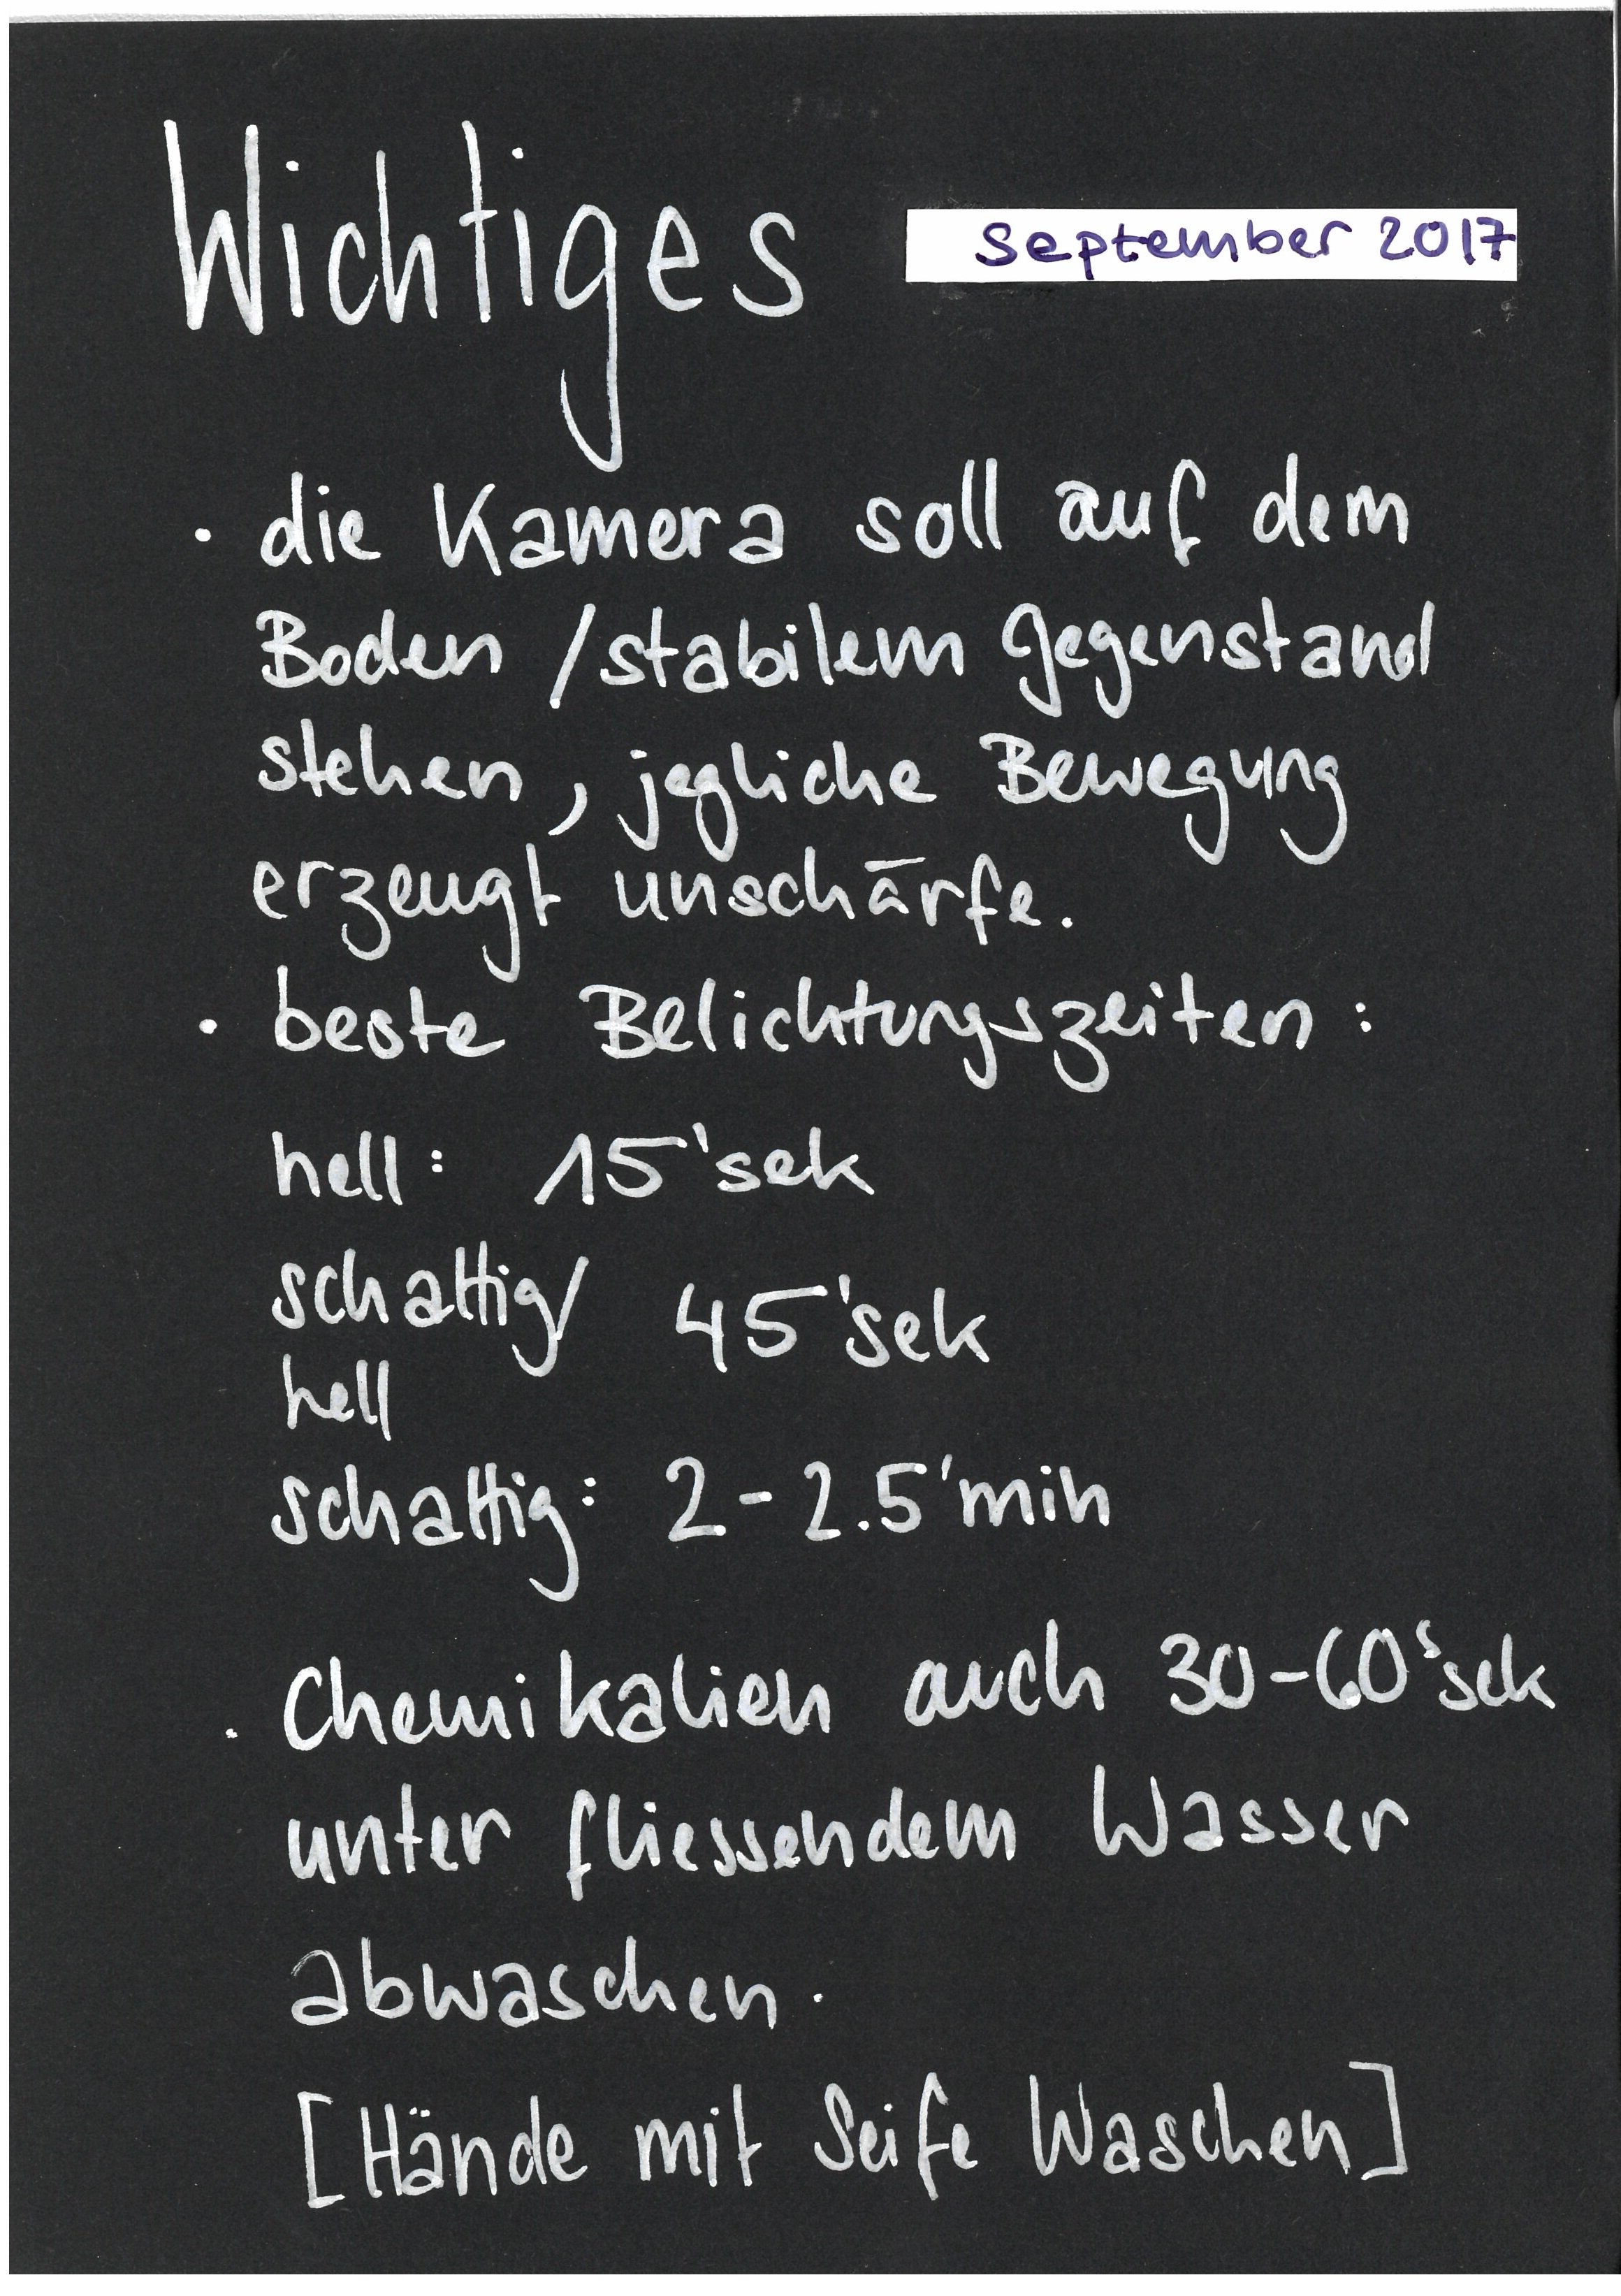 Wichtiges
September 2017
· die Kamera soll auf dem
Boden / stabilem Gegenstand
stehen, jegliche Bewegung
erzeugt unschärfe.
· beste Belichtungszeiten:
hell: 15'sek
schattig/ 45'sek
hell
schattig: 2-2.5'min
· Chemikalien auch 30-60's sek
unter fliessendem Wasser
abwaschen.
[Hände mit Seife Waschen]